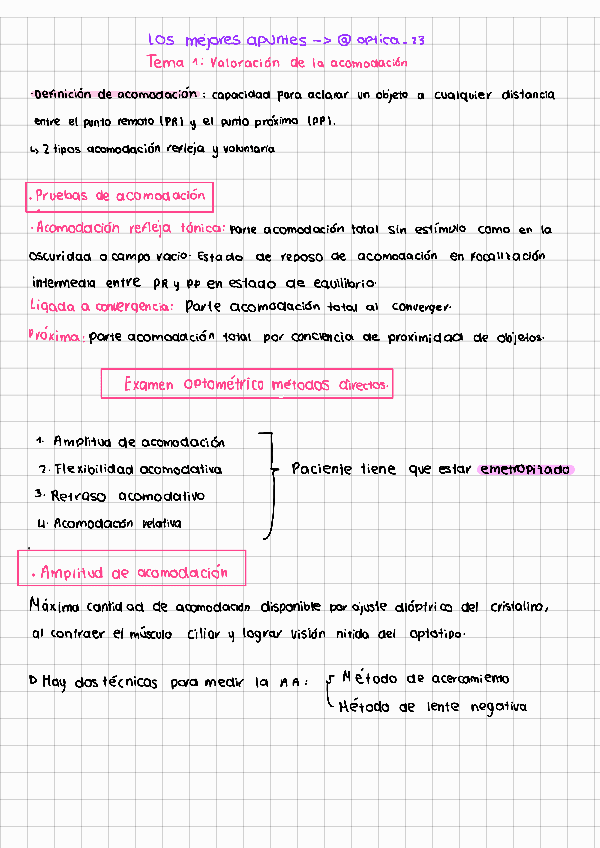 Los mejores apuntes --> @ optica_23
Tema 1: Valoración de la acomodación
·Definición de acomodación: capacidad para aclarar un objeto a cualquier distancia
entre el punto remoto (PR) y el punto próximo (PP).
↳ 2 tipos acomodación refleja y voluntaria
·Pruebas de acomodación
·Acomodación refleja tónica: parte acomodación total sin estímulo como en la
oscuridad o campo vacio. Estado de reposo de acomodación en focalización
intermedia entre PR y PP en estado de equilibrio.
Ligada a convergencia: Parte acomodación total al converger.
Próxima: parte acomodación total por conciencia de proximidad de objetos.
Examen optométrico métodos directos.
1. Amplitud de acomodación
2. Flexibilidad acomodativa
Paciente tiene que estar emetropitado
3. Retraso acomodativo
4. Acomodación relativa
· Amplitud de acomodación
Máxima cantidad de acomodación disponible por ajuste dióptrico del cristalino,
al contraer el músculo ciliar y lograr visión nitida del optotipo.
D Hay dos técnicas para medir la AA:
Método de acercamiento
Método de lente negativa